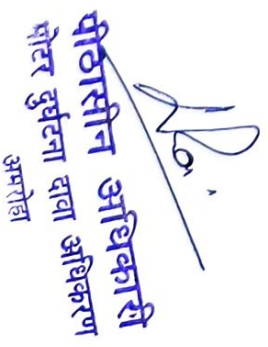 पीठासीन अधिकारी
मोटर दुर्घटना दावा अधिकरण
अमरोहा